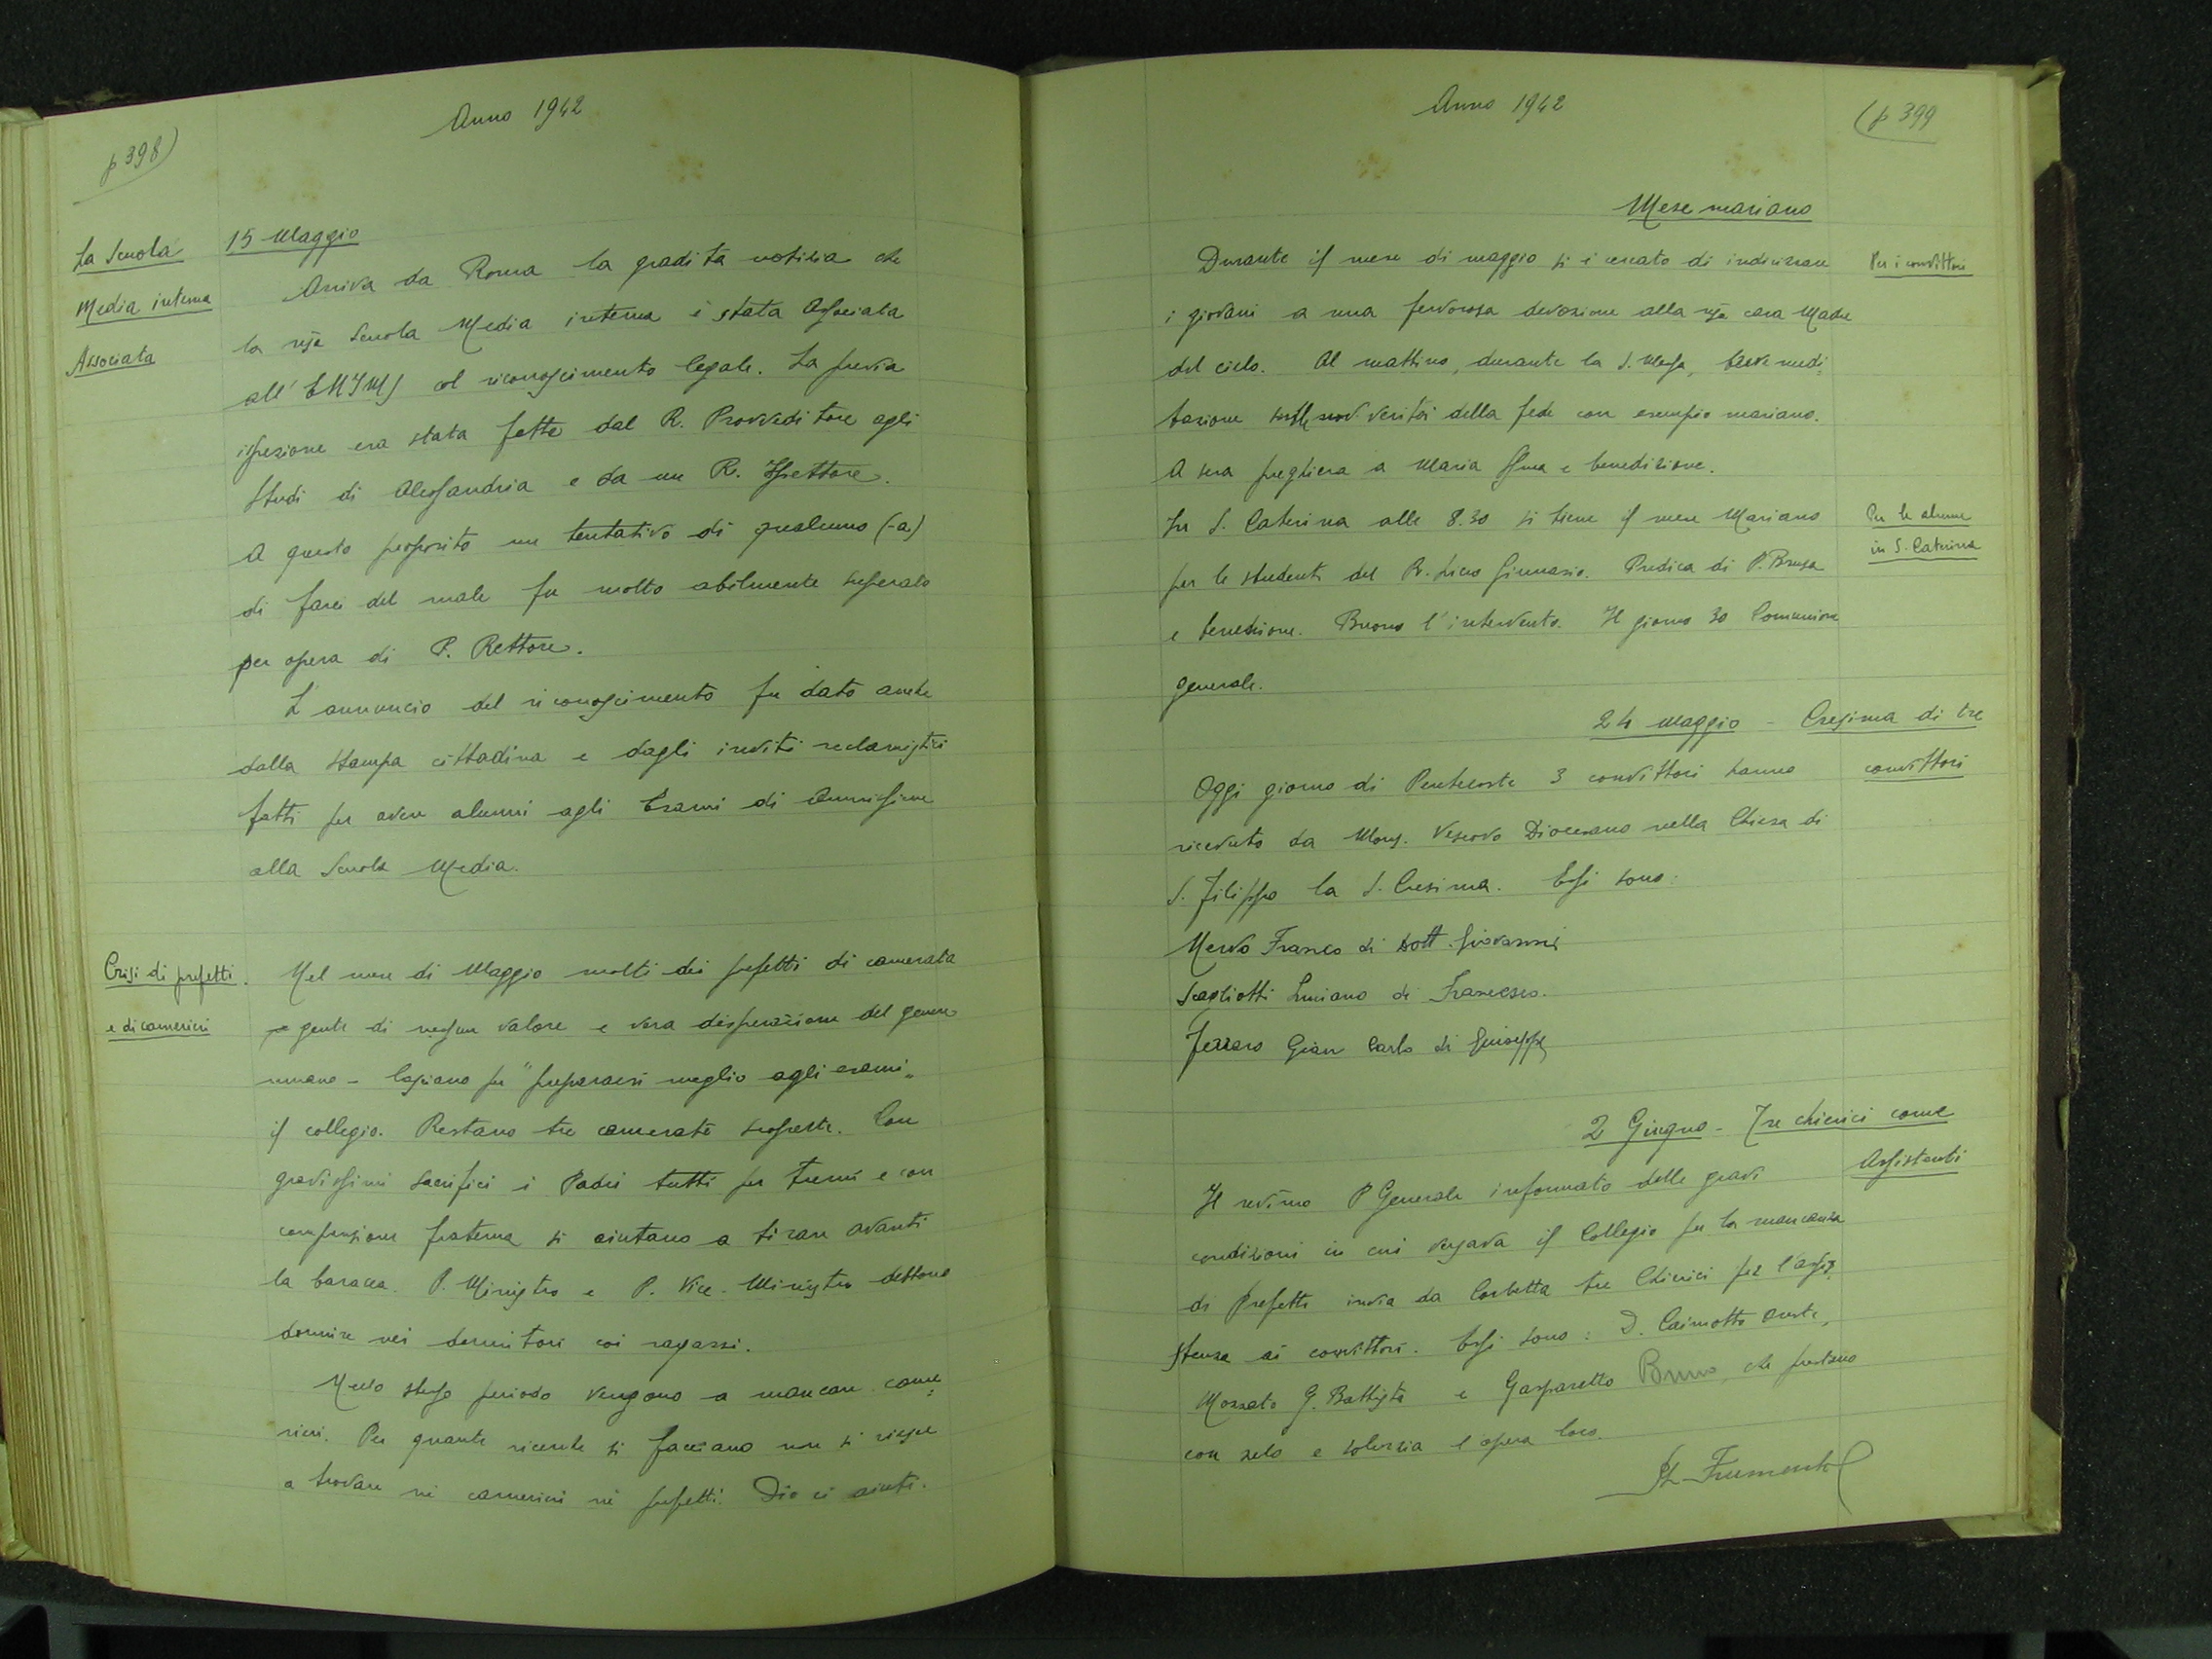 Anno 1942
p 398)
La Scuola
Media interna
Associata
15 Maggio
Arriva da Roma la gradita notizia che
la nṡa Scuola Media interna è stata Associata
all'ENIMS col riconoscimento legale. La previa
ispezione era stata fatta dal R. Provveditore agli
Studi di Alessandria e da un R. Ispettore.
A questo proposito un tentativo di qualcuno (-a)
di farci del male fu molto abilmente superato
per opera di P. Rettore.
L'annuncio del riconoscimento fu dato anche
dalla stampa cittadina e dagli inviti reclamistici
fatti per avere alunni agli Esami di Ammissione
alla Scuola Media.
Crisi di prefetti
e di camerieri
Nel mese di Maggio molti dei prefetti di camerata
gente di nessun valore e vera disperazione del genere
umano - lasciano per "prepararsi meglio agli esami"
il collegio. Restano tre camerate scoperte. Con
gravissimi sacrifici i Padri tutti per turni e con
comprensione fraterna si aiutano a tirare avanti
la baracca. P. Ministro e P. Vice-Ministro dettono
dormire nei dormitori coi ragazzi.
Nello stesso periodo vengono a mancare came=
rieri. Per quante ricerche si facciano non si riesce
a trovare nè camerieri nè prefetti. Dio ci aiuti.
Anno 1942
(p 399
Mese mariano
Per i convittori
Durante il mese di maggio si è cercato di indirizzare
i giovani a una fervorosa devozione alla nṡa cara Madre
del cielo. Al mattino, durante la S. Messa, breve medi=
tazione sulle verità della fede con esempio mariano.
A sera preghiera a Maria SSma e benedizione.
Per le alunne
in S. Caterina
In S. Caterina alle 8.30 si tiene il mese Mariano
per le studenti del R. Liceo Ginnasio. Predica di P. Brusa
e benedizione. Buono l'intervento. Il giorno 30 Comunione
generale.
24 Maggio - Cresima di tre
convittori
Oggi giorno di Pentecoste 3 convittori hanno
ricevuto da Mons. Vescovo Diocesano nella Chiesa di
S. Filippo la S. Cresima. Essi sono:
Mervo Franco di Dott. Giovanni
Scagliotti Luciano di Francesco.
Ferraro Gian Carlo di Giuseppe
2 Giugno - Tre chierici come
Assistenti
Il rev̄mo P Generale informato delle gravi
condizioni in cui versava il Collegio per la mancanza
di Prefetti invia da Corbetta tre Chierici per l'assi=
stenza ai convittori. Essi sono: D. Caimotto Oreste,
Mossato G. Battista e Gasparetto Bruno, che prestano
con zelo e solerzia l'opera loro.